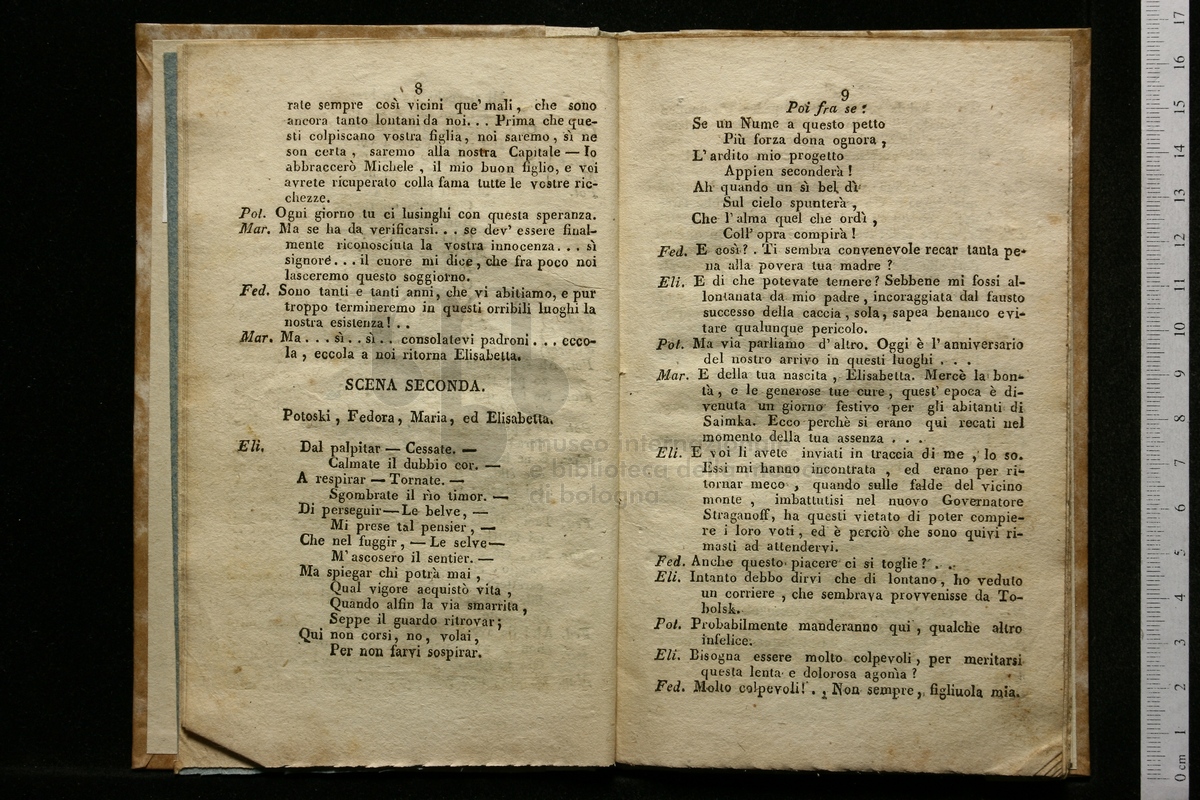 8
rate sempre così vicini que' mali, che sono
ancora tanto lontani da noi... Prima che que-
sti colpiscano vostra figlia, noi saremo, sì ne
son certa, saremo alla nostra Capitale — Io
abbraccerò Michele, il mio buon figlio, e voi
avrete ricuperato colla fama tutte le vostre ric-
chezze.
Pot. Ogni giorno tu ci lusinghi con questa speranza.
Mar. Ma se ha da verificarsi... se dev' essere final-
mente riconosciuta la vostra innocenza... sì
signore... il cuore mi dice, che fra poco noi
lasceremo questo soggiorno.
Fed. Sono tanti e tanti anni, che vi abitiamo, e pur
troppo termineremo in questi orribili luoghi la
nostra esistenza!..
Mar. Ma... sì.. sì.. consolatevi padroni... ecco-
la, eccola a noi ritorna Elisabetta.
SCENA SECONDA.
Potoski, Fedora, Maria, ed Elisabetta.
Eli. Dal palpitar — Cessate. —
Calmate il dubbio cor. —
A respirar — Tornate. —
Sgombrate il rio timor. —
Di perseguir — Le belve, —
Mi prese tal pensier, —
Che nel fuggir, — Le selve —
M' ascosero il sentier. —
Ma spiegar chi potrà mai,
Qual vigore acquistò vita,
Quando alfin la via smarrita,
Seppe il guardo ritrovar;
Qui non corsi, no, volai,
Per non farvi sospirar.
9
Poi fra se:
Se un Nume a questo petto
Più forza dona ognora,
L' ardito mio progetto
Appien seconderà!
Ah quando un sì bel dì
Sul cielo spunterà,
Che l' alma quel che ordì,
Coll' opra compirà!
Fed. E così?. Ti sembra convenevole recar tanta pe-
na alla povera tua madre?
Eli. E di che potevate temere? Sebbene mi fossi al-
lontanata da mio padre, incoraggiata dal fausto
successo della caccia, sola, sapea benanco evi-
tare qualunque pericolo.
Pot. Ma via parliamo d' altro. Oggi è l' anniversario
del nostro arrivo in questi luoghi...
Mar. E della tua nascita, Elisabetta. Mercè la bon-
tà, e le generose tue cure, quest' epoca è di-
venuta un giorno festivo per gli abitanti di
Saimka. Ecco perchè si erano qui recati nel
momento della tua assenza...
Eli. E voi li avete inviati in traccia di me, lo so.
Essi mi hanno incontrata, ed erano per ri-
tornar meco, quando sulle falde del vicino
monte, imbattutisi nel nuovo Governatore
Straganoff, ha questi vietato di poter compie-
re i loro voti, ed è perciò che sono quivi ri-
masti ad attendervi.
Fed. Anche questo piacere ci si toglie?...
Eli. Intanto debbo dirvi che di lontano, ho veduto
un corriere, che sembrava provvenisse da To-
bolsk.
Pot. Probabilmente manderanno qui, qualche altro
infelice.
Eli. Bisogna essere molto colpevoli, per meritarsi
questa lenta e dolorosa agonìa?
Fed. Molto colpevoli!.. Non sempre, figliuola mia.
museo internazionale
e biblioteca della musica
di bologna
0 cm 1 2 3 4 5 6 7 8 9 10 11 12 13 14 15 16 17